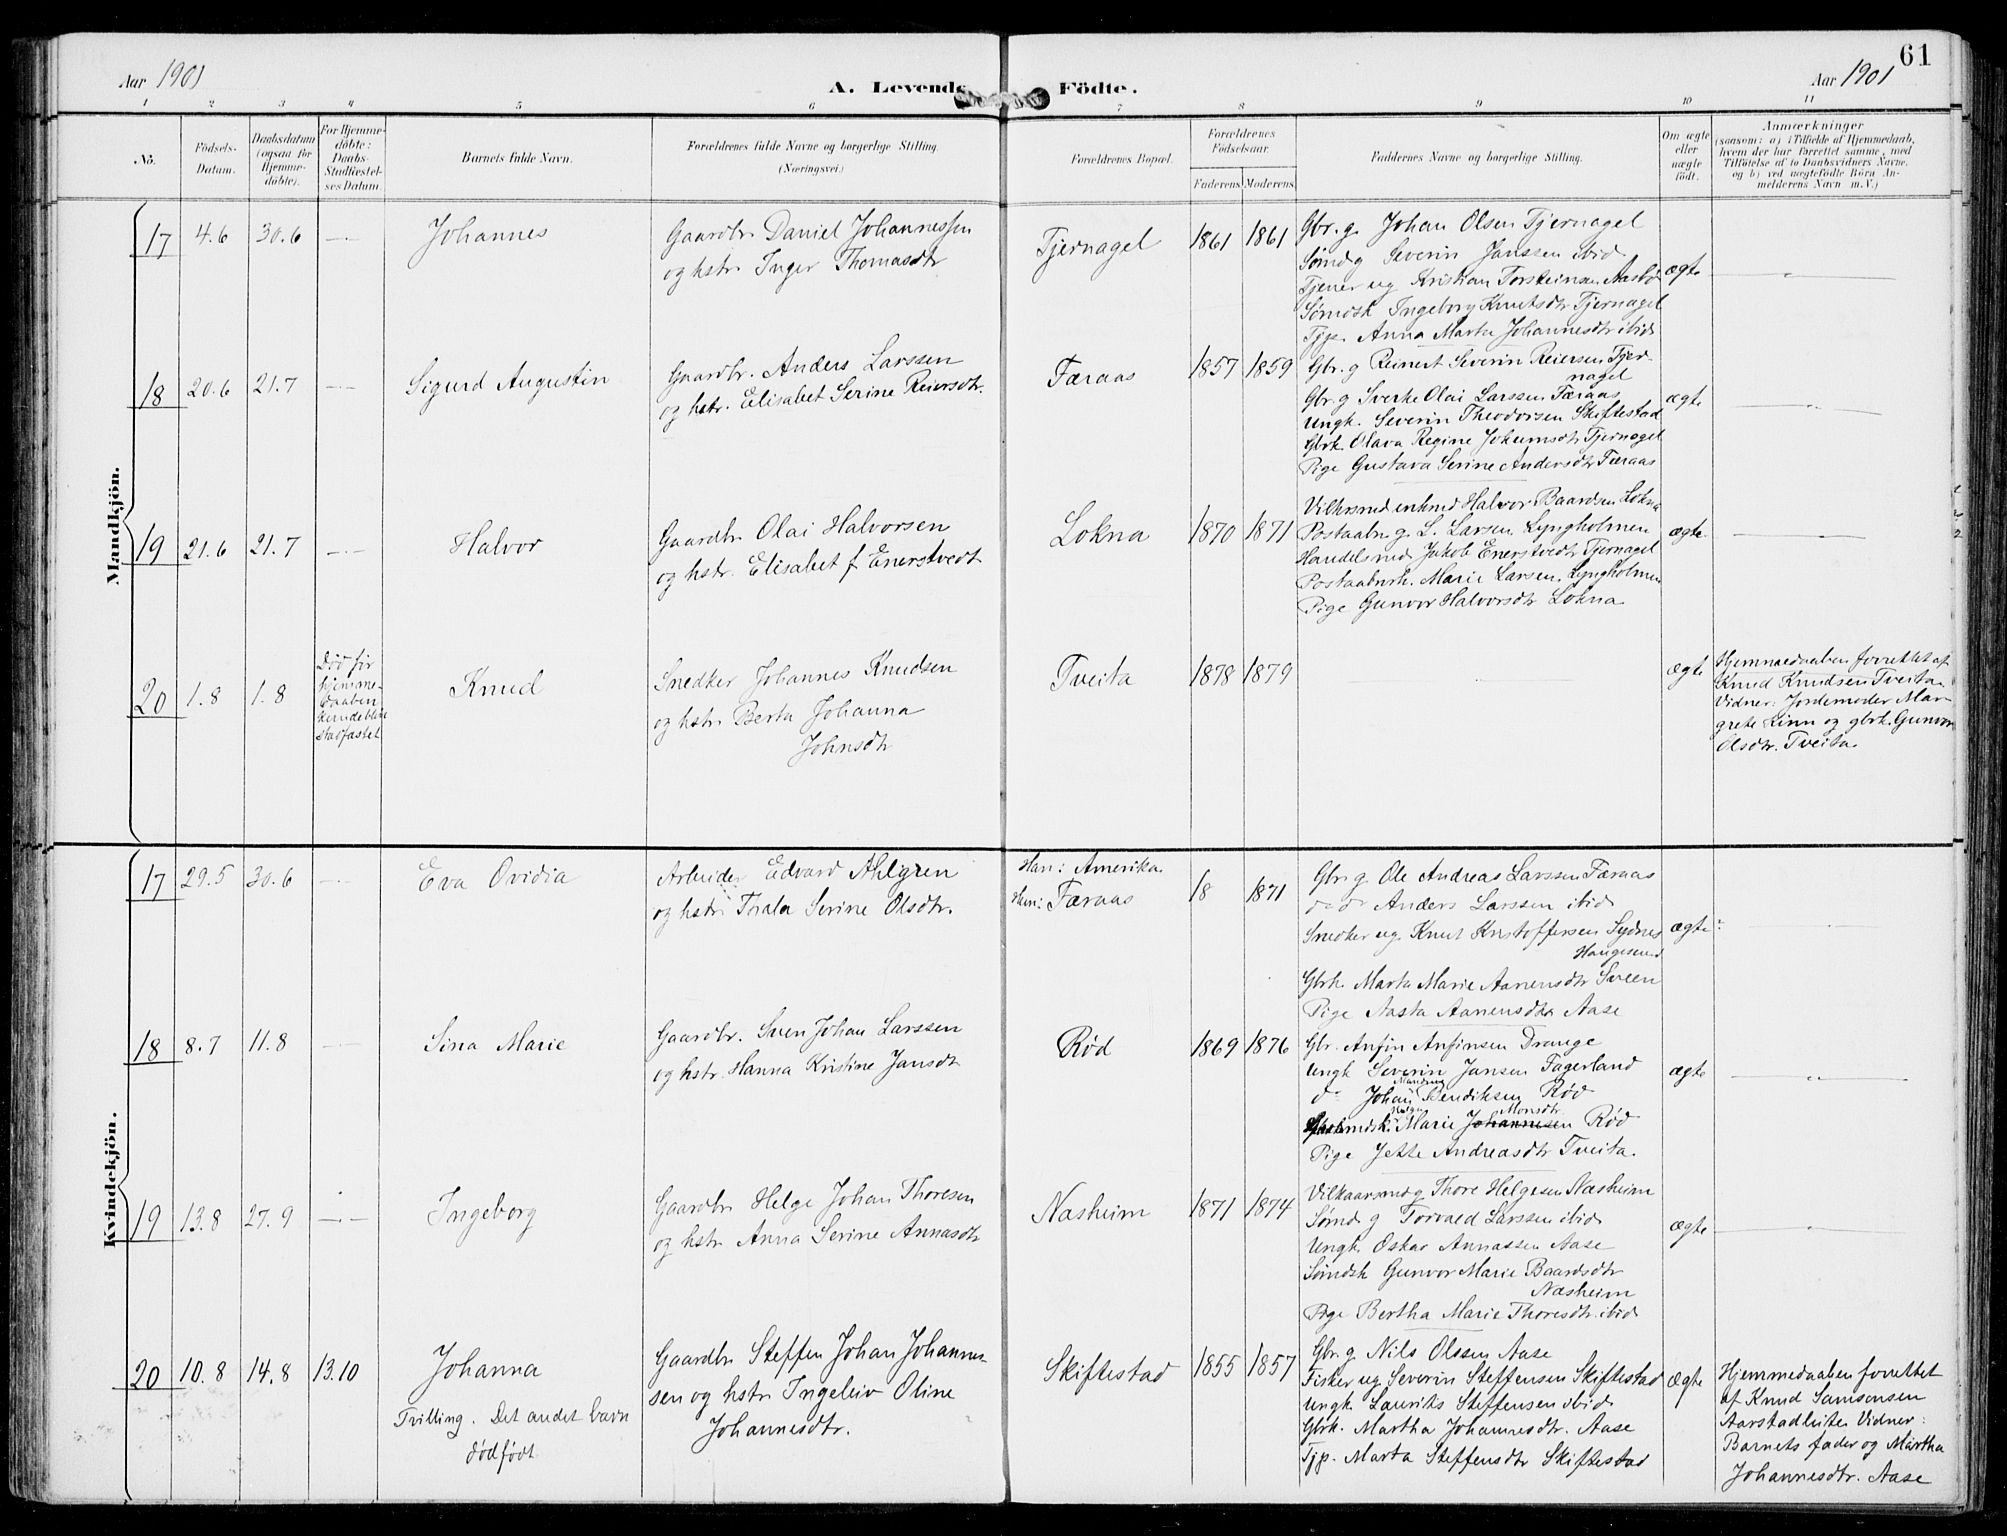 61
Aar 1901
A. Levende Födte.
Aar 1901
1 2 3 4 5 6 7 8 9 10 11
No.
Födsels-
Datum.
Daabsdatum
(ogsaa for
Hjemme-
döbte).
For Hjemme-
döbte:
Daabs-
Stadfæstel-
ses Datum.
Barnets fulde Navn.
Forældrenes fulde Navne og borgerlige Stilling.
(Næringsvei.)
Forældrenes Bopæl.
Forældrenes
Födselsaar.
Faderens. Moderens.
Faddernes Navne og borgerlige Stilling.
Om ægte
eller
uægte
födt.
Anmærkninger
(saasom: a) i Tilfælde af Hjemmedaab,
hvem der har forrettet samme, med
Tilföielse af to Daabsvidners Navne,
og b) ved uægtefödte Börn An-
melderens Navn m. V.)
Mandkjön.
17 4.6 30.6 Johannes
Gaardbr. Daniel Johannessen
og hstr. Inger Thomasdtr
Tjernagel 1861 1861
Gbr. g. Johan Olsen Tjernagel
Sømd g Severin Janssen ibid
Tjener ug Kristian Torsteinsen Aasbø
Sømdsk Ingeborg Knutsdtr Tjernagel
Tjp. Anna Marta Johannesdtr ibid
ægte
18 20.6 21.7 Sigurd Augustin
Gaardbr. Anders Larssen
og hstr. Elisabet Serine Reiersdtr.
Færaas 1857 1859
Gbr. g Reinert Severin Reiersen Tjer-
nagel
Gbr. g Sverke Olai Larssen Færaas
Ungk. Severin Theodorsen Skiftestad
Gbrk. Olava Regine Jokumsdtr Tjernagel
Pige Gustava Serine Andersdtr Færaas
ægte
19 21.6 21.7 Halvor
Gaardbr Olai Halvorsen
og hstr. Elisabet f Enerstvedt
Lokna 1870 1871
Vilkrsmd enkmd Halvor Baardsen Lokna
Postaabn g. L. Larsen Lyngholmen
Handelsmd Jakob Enerstvedt Tjernagel
Postaabnrk. Marie Larsen Lyngholmen
Pige Gunvor Halvorsdtr Lokna
ægte
20 1.8 1.8
Død før
hjemme-
daaben
kunde blive
stadfæstet
Knud
Snedker Johannes Knudsen
og hstr Berta Johanna
Johnsdtr
Tveita 1878 1879
ægte
Hjemmedaaben forrettet af
Knud Knudsen Tveita.
Vidner: Jordemoder Mar-
grete Linn og gbrk. Gunvor
Olsdtr. Tveita
Kvindekjön.
17 29.5 30.6 Eva Ovidia
Arbeider Edvard Ahlgren
og hstr Thala Serine Olsdtr.
Han: Amerika
Hun: Færaas 18 1871
Gbr. g Ole Andreas Larssen Færaas
d° d° Anders Larssen ibid
Snedker ug. Knut Kristoffersen Sydnes
Haugesund
Gbrk. Marta Marie Aanensdtr Sveen
Pige Aasta Aanensdtr Aase
ægte
18 8.7 11.8 Sina Marie
Gaardbr. Sven Johan Larssen
og hstr. Hanna Kristine Jansdtr
Rød 1869 1876
Gbr. Anfin Anfinsen Drange
Ungk Severin Jansen Fagerland
d° Johan Mandrup Bendiksen Rød
Marie Monsdtr Rød
Pige Jette Andreasdtr Tveita.
ægte
19 13.8 27.9 Ingeborg
Gaardbr Helge Johan Thoresen
og hstr Anna Serine Annasdtr
Næsheim 1871 1874
Vilkaarsmd g Thore Helgesen Næsheim
Sømd g Torvald Larssen ibid
Ungk Oskar Annassen Aase
Sømdsk Gunvor Marie Baardsdtr
Næsheim
Pige Bertha Marie Thoresdtr ibid
ægte
20 10.8 14.8 13.10 Johanna
Tvilling. Det andet barn
dødfødt
Gaardbr Steffen Johan Johannes-
sen og hstr Ingeleiv Oline
Johannesdtr.
Skiftestad 1855 1857
Gbr. g Nils Olssen Aase
Fisker ug Severin Steffensen Skiftestad
Ungk Laurits Steffensen ibid
Gbrk. Martha Johannesdtr. Aase
Tjp. Marta Steffensdtr Skiftestad
ægte
Hjemmedaaben forrettet
af Knud Samsonsen
Aarstadleite. Vidner:
Barnets fader og Martha
Johannesdtr. Aase